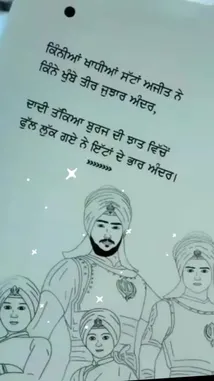 ਕਿੰਨੀਆਂ ਖਾਧੀਆਂ ਸੱਟਾਂ ਅਜੀਤ ਨੇ
ਕਿੰਨੇ ਖੁੱਬੇ ਤੀਰ ਜੁਝਾਰ ਅੰਦਰ,
ਦਾਦੀ ਤੱਕਿਆ ਬੁਰਜ ਦੀ ਝਾਤ ਵਿੱਚੋਂ
ਫੁੱਲ ਲੁਕ ਗਏ ਨੇ ਇੱਟਾਂ ਦੇ ਭਾਰ ਅੰਦਰ।
»»»»»»